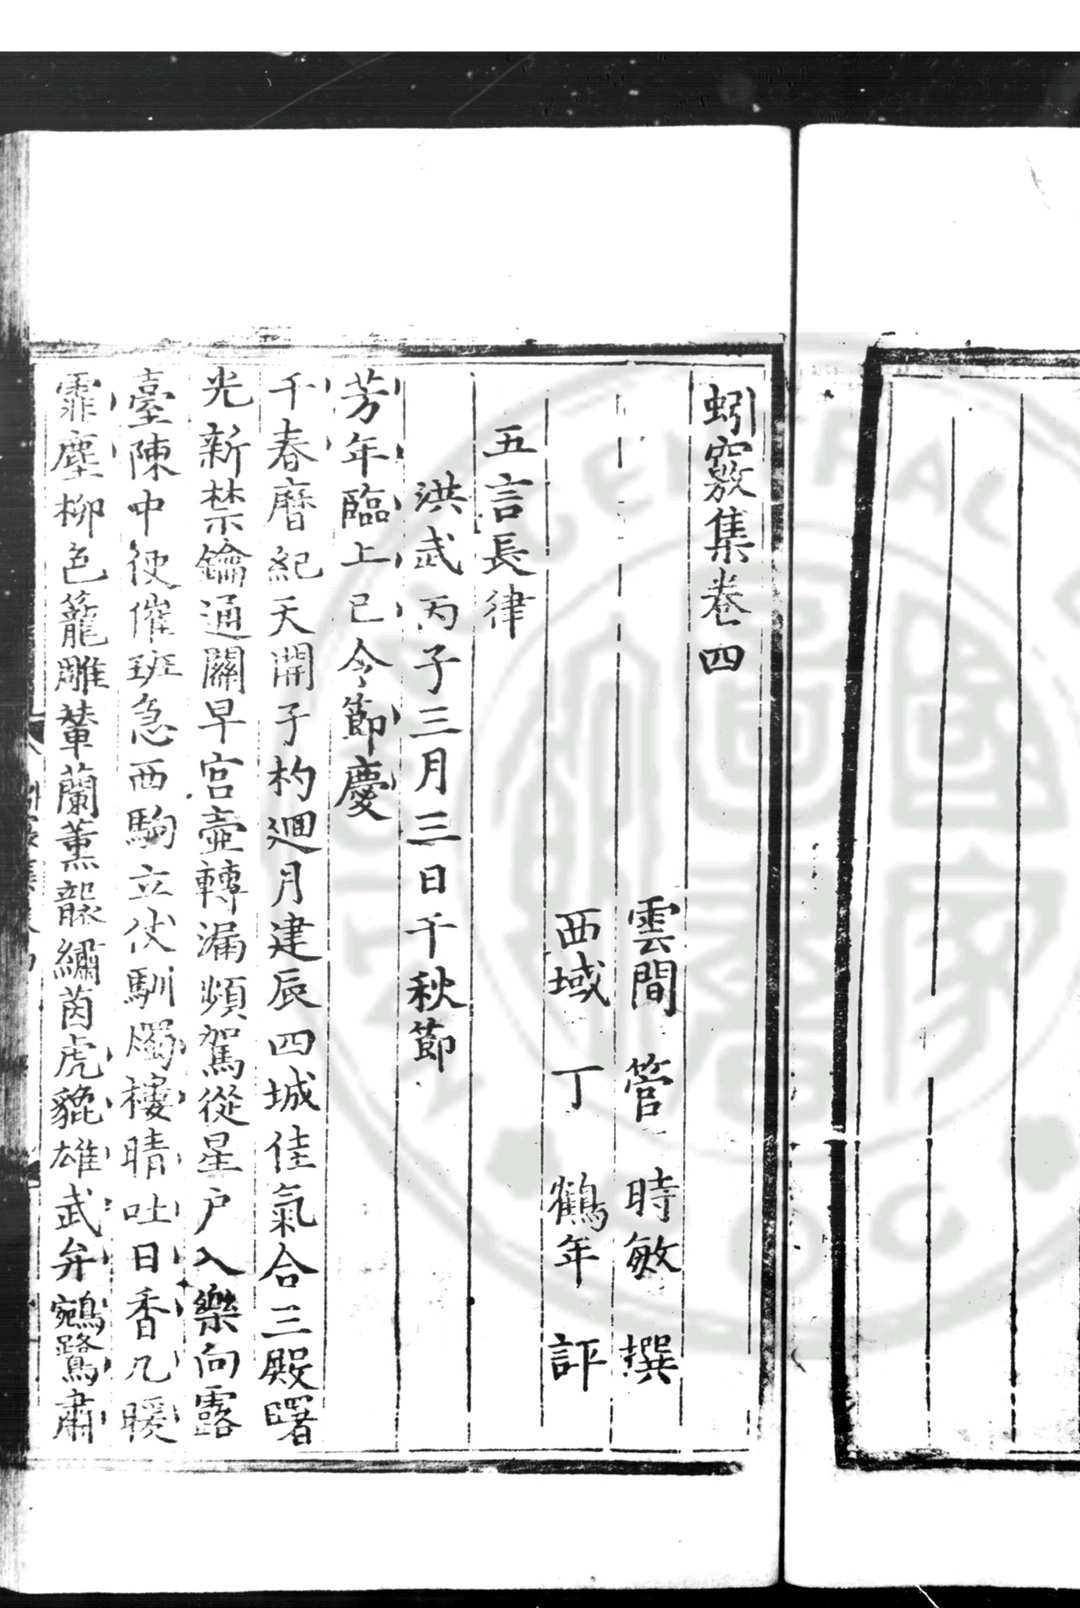 蚓竅集卷四
雲間 管 時敏 撰
西域 丁 鶴年 評
五言長律
洪武丙子三月三日千秋節
芳年臨上巳令節慶
千春曆紀天開子杓迴月建辰四城佳氣合三殿曙
光新禁鑰通關早宮壺轉漏頻駕從星戶入樂向露
臺陳中使催班急西駒立仗馴燭樓晴吐日香几暖
霏塵柳色籠雕輦蘭薰襲繡茵虎貔雄武弁鵷鷺肅